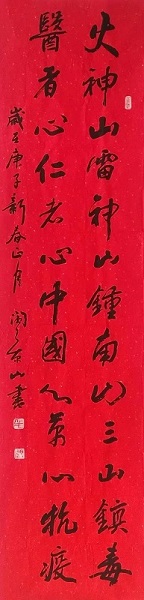 火神山雷神山鍾南山三山鎮毒
醫者心仁者心中國心萬心抗疫
歲在庚子新春正月 閑石山書